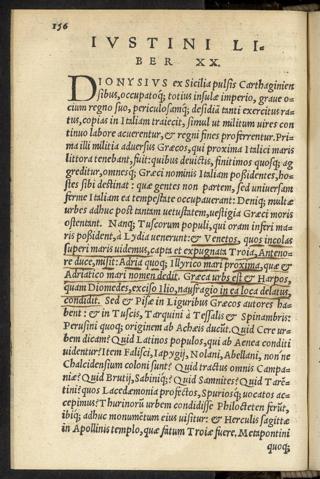 156
IVSTINI LI-
BER XX.
DIONYSIVS ex Sicilia pulsis Carthaginien
sibus, occupatoq; totius insulæ imperio, graue o-
cium regno suo, periculosamq; desidiã tanti exercitus ra-
tus, copias in Italiam traiecit, simul ut militum uires con
tinuo labore acuerentur, & regni fines proferrentur. Pri-
ma illi militia aduersus Græcos, qui proxima Italici maris
littora tenebant, fuit: quibus deuictis, finitimos quosq; ag
greditur, omnesq; Græci nominis Italiam possidentes, ho-
stes sibi destinat: quæ gentes non partem, sed uniuersam
ferme Italiam ea tempestate occupauerant: Deniq; multæ
urbes adhuc post tantam uetustatem, uestigia Græci moris
ostentant. Nanq; Tuscorum populi, qui oram inferi ma-
ris possident, à Lydia uenerunt: & Venetos, quos incolas
superi maris uidemus, capta et expugnata Troia, Anteno-
re duce, misit: Adria quoq; Illyrico mari proxima, quæ &
Adriatico mari nomen dedit. Græca urbs est & Harpos,
quam Diomedes, exciso Ilio, naufragio in ea loca delatus,
condidit. Sed & Pisæ in Liguribus Græcos autores ha-
bent: & in Tuscis, Tarquini à Tessalis & Spinambris:
Perusini quoq; originem ab Achæis ducũt. Quid Cere ur-
bem dicam? Quid Latinos populos, qui ab Aenea conditi
uidentur? Item Falisci, Iapygij, Nolani, Abellani, non'ne
Chalcidensium coloni sunt? Quid tractus omnis Campa-
niæ? Quid Brutij, Sabiniq;? Quid Samnites? Quid Tarẽ-
tini? quos Lacedæmonia profectos, Spuriosq; uocatos ac-
cepimus? Thurinorũ urbem condidisse Philocteten ferũt,
ibiq; adhuc monumẽtum eius uisitur: & Herculis sagittæ
in Apollinis templo, quæ fatum Troiæ fuere. Metapontini
quoq;